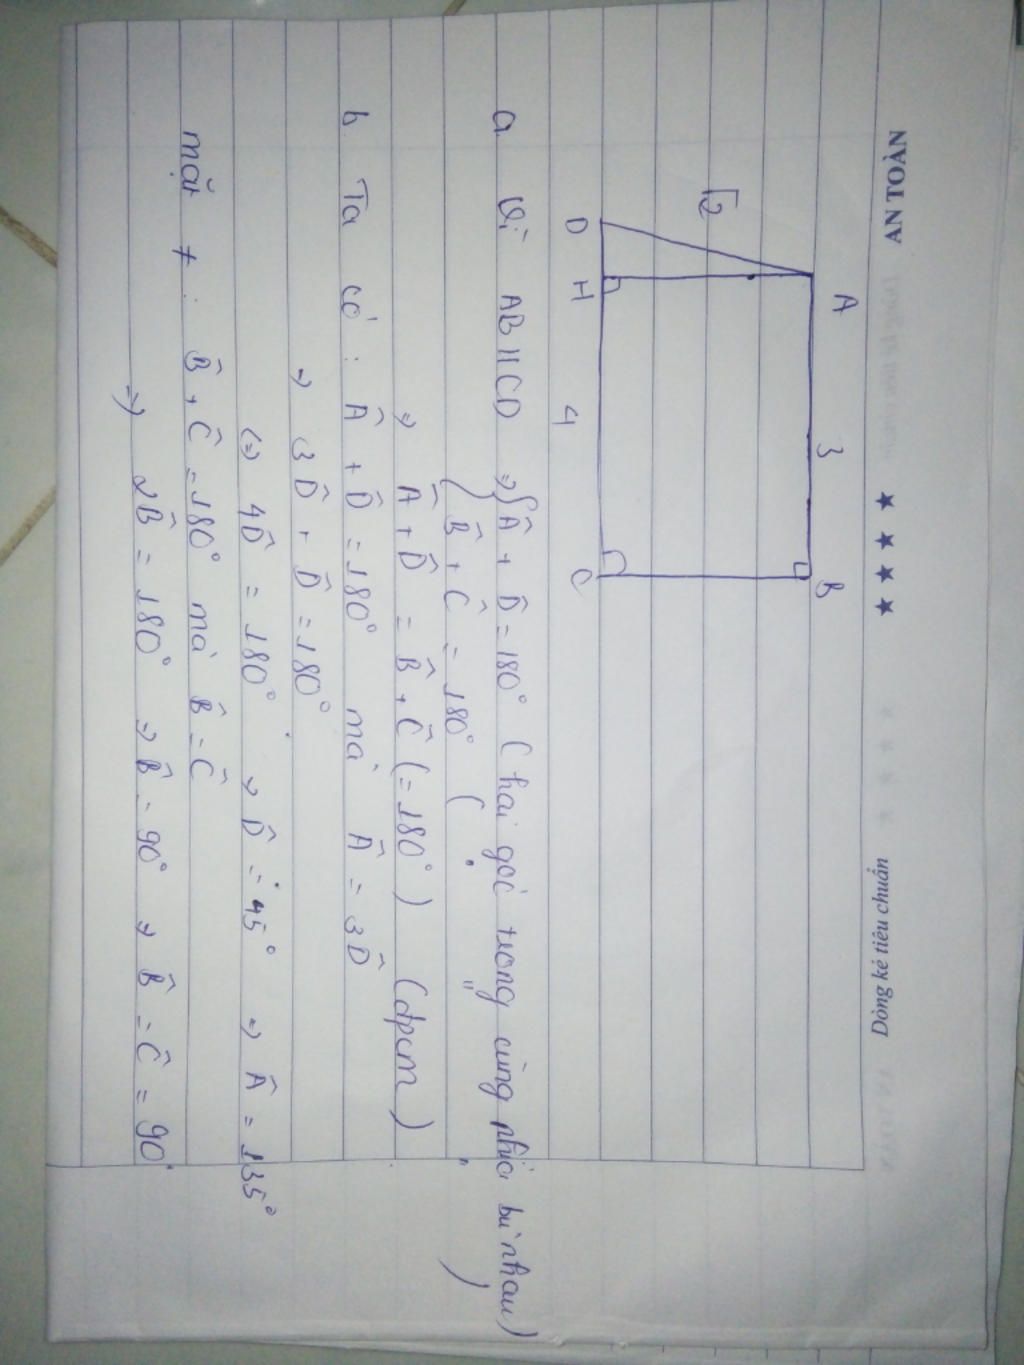 AN TOÀN ★ ★ ★ ★ Dòng kẻ tiêu chuẩn
A 3 B
√2
D H 4 C
a. Vì AB // CD => { Â + D̂ = 180° ( hai góc trong cùng phía bù nhau )
B̂ + Ĉ = 180° ( " " )
=> Â + D̂ = B̂ + Ĉ (= 180° ) (đpcm )
b. Ta có : Â + D̂ = 180° mà Â = 3D̂
=> 3D̂ + D̂ = 180°
(=> 4D̂ = 180° => D̂ = 45° => Â = 135°
mặt ≠ : B̂ + Ĉ = 180° mà B̂ = Ĉ
=> 2B̂ = 180° => B̂ = 90° => B̂ = Ĉ = 90°